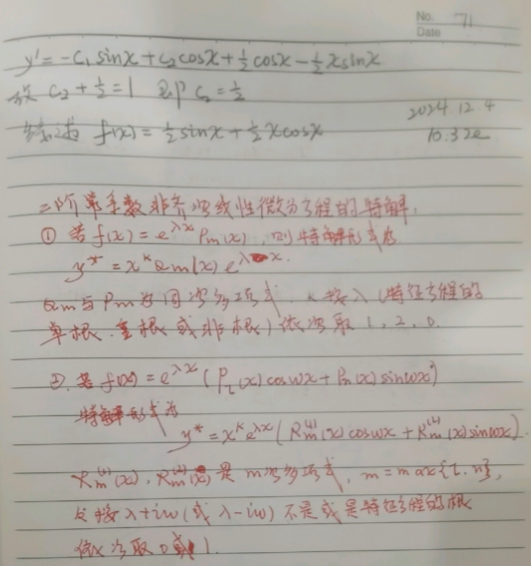 No. 71
Date
y' = -C₁ sinx + C₂ cosx + ½ cosx - ½ x sinx
故 C₂ + ½ = 1 即 C₂ = ½
综述 f(x) = ½ sinx + ½ x cosx
2024.12.4
10.32
二阶常系数非齐次线性微分方程的特解.
① 若 f(x) = e^{λx} Pm(x), 则特解形式为
y* = x^k Qm(x) e^{λx}.
Qm 与 Pm 为同次多项式. k 按 λ (特征方程的
单根. 重根 或非根) 依次取 1, 2, 0.
②. 若 f(x) = e^{λx} (P_l(x) cosωx + Pn(x) sinωx)
特解形式为
y* = x^k e^{λx} (Rm^{(1)}(x) cosωx + Rm^{(2)}(x) sinωx).
Rm^{(1)}(x), Rm^{(2)}(x) 是 m次多项式, m = max{l, n},
k 按 λ+iω (或 λ-iω) 不是或是特征方程的根
依次取 0或 1.